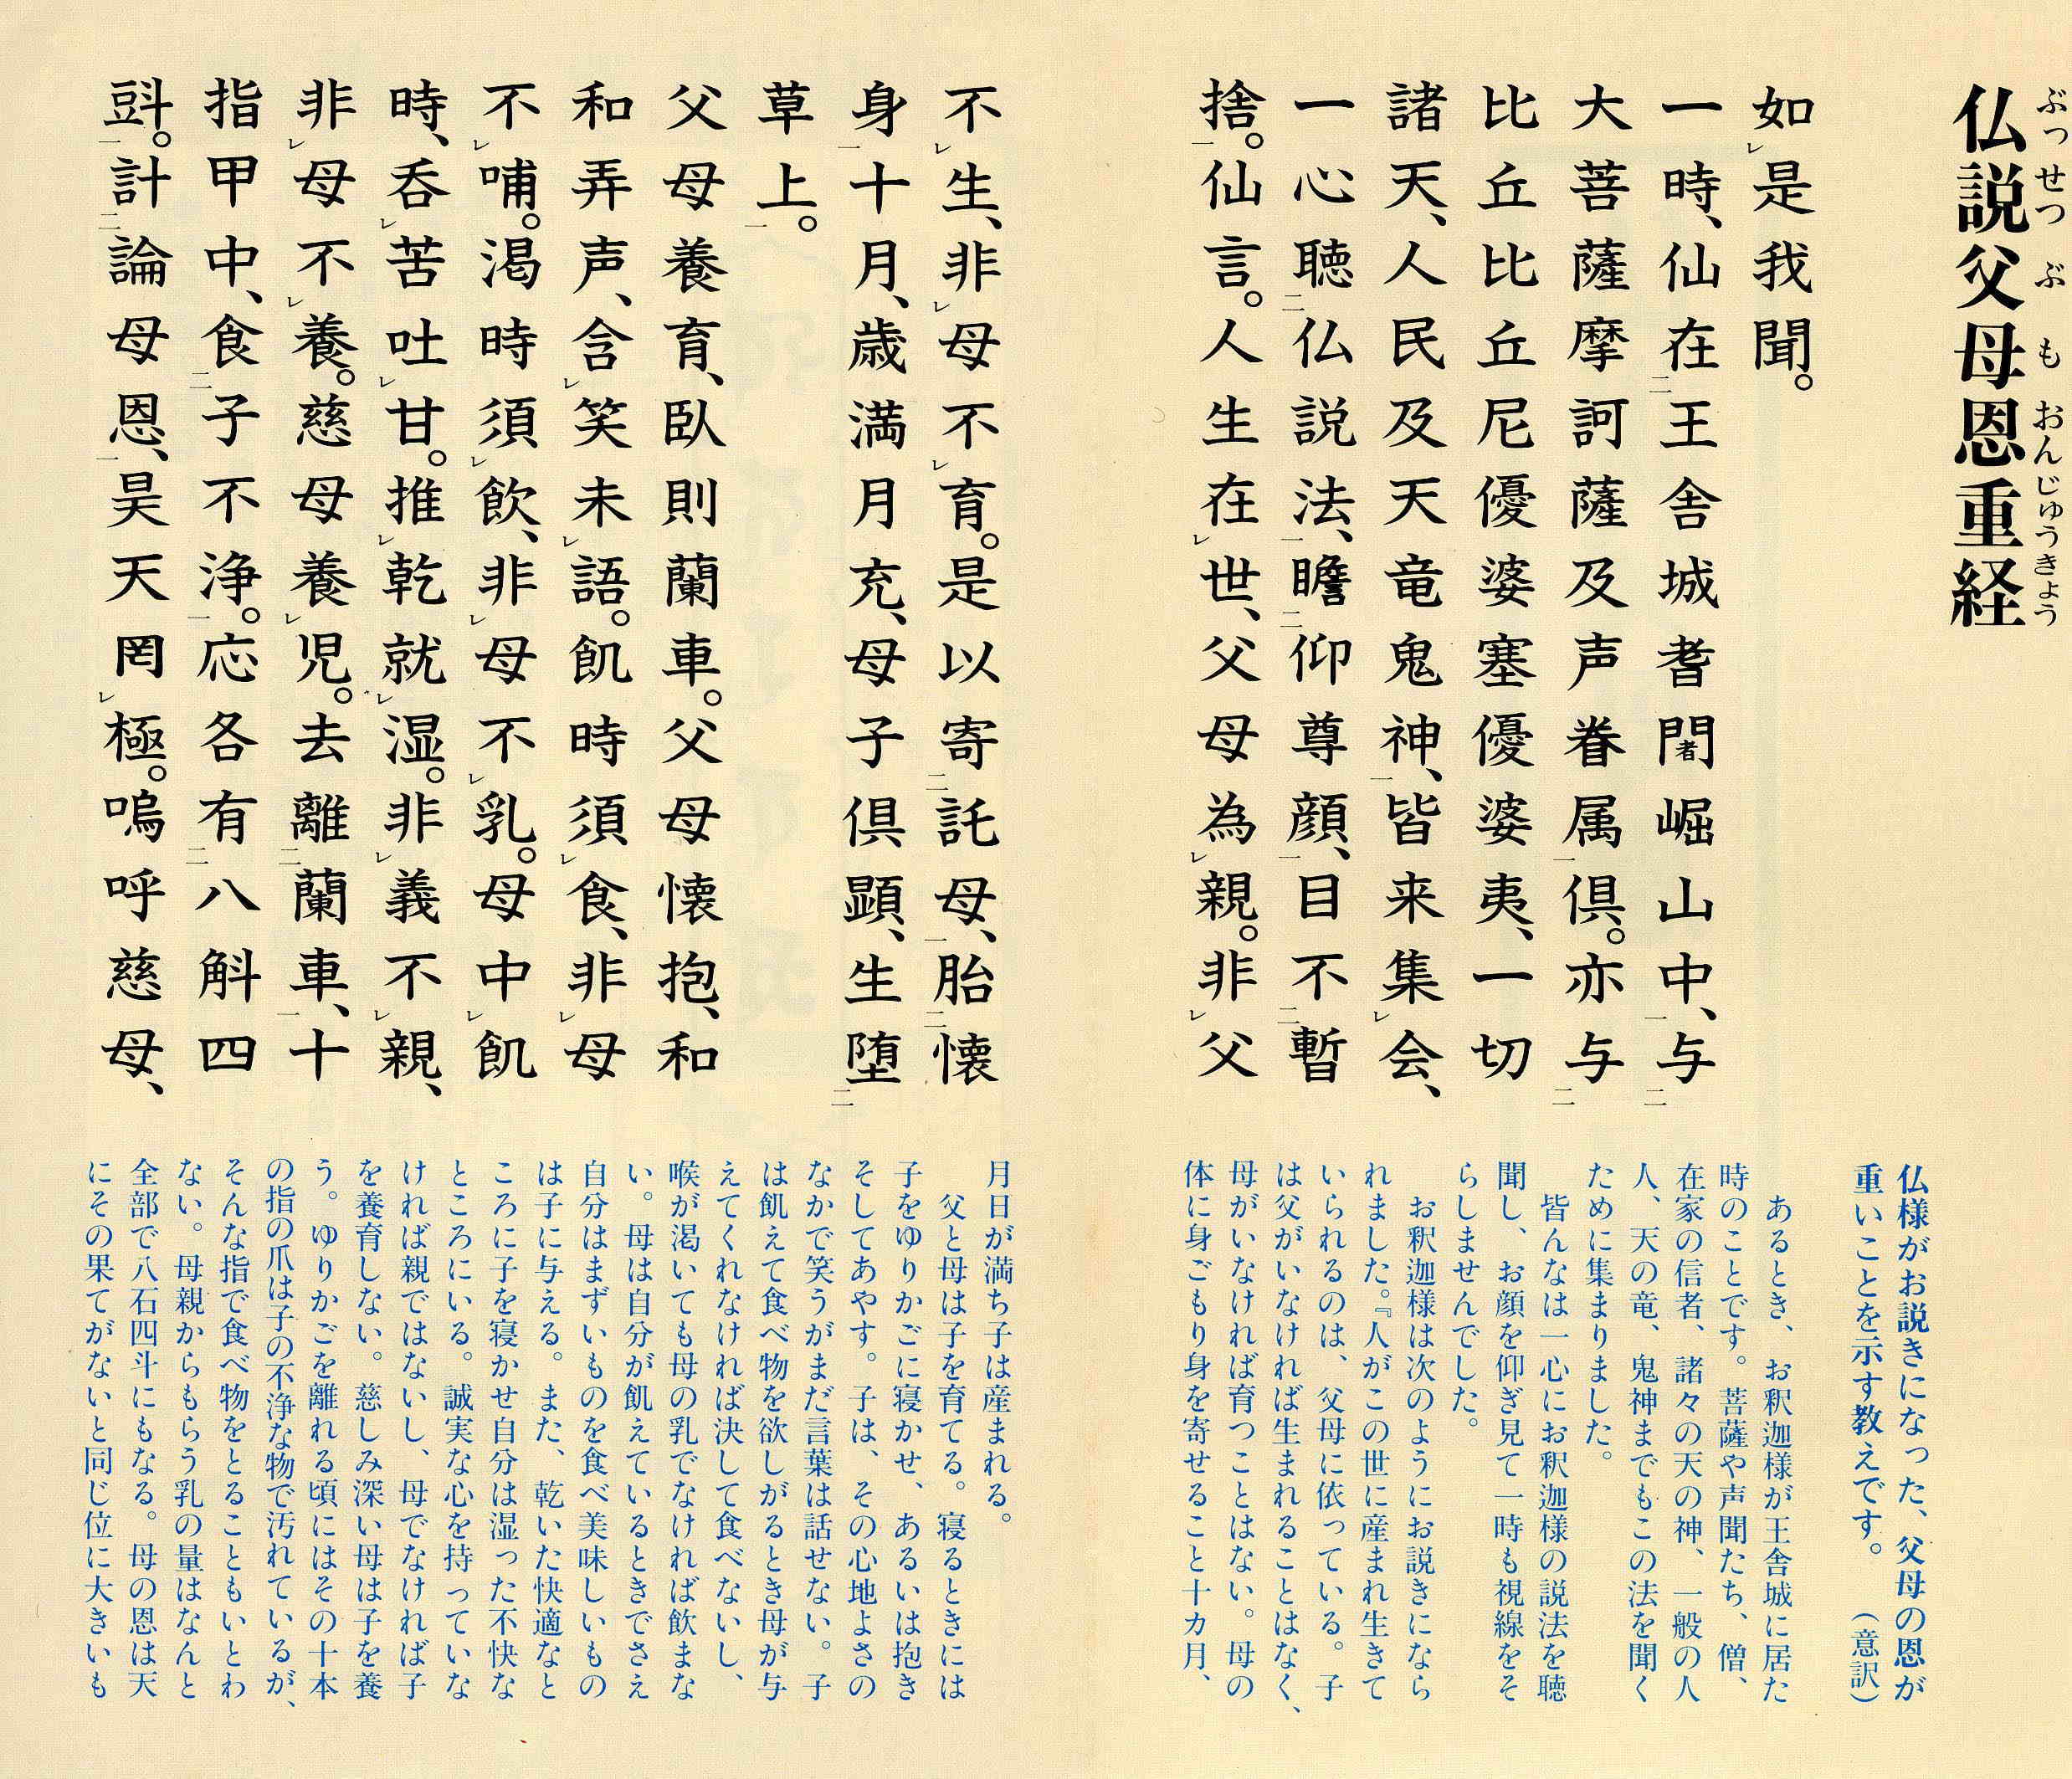 仏説父母恩重経
ぶっせつぶもおんじゅうきょう
如レ是我聞。
一時、仙在二王舎城耆闍崛山中、一与二
大菩薩摩訶薩及声眷属一倶。亦与二
比丘比丘尼優婆塞優婆夷、一切
諸天、人民及天竜鬼神、一皆来集レ会、
一心聴二仏説法、一瞻二仰尊顔、一目不二暫
捨。一仙言。人生在レ世、父母為レ親。非レ父
不レ生、非レ母不レ育。是以寄二託母、一胎二懐
身一十月、歳満月充、母子倶顕、生堕二
草上。一
父母養育、臥則蘭車。父母懐抱、和
和弄声、含レ笑未レ語。飢時須レ食、非レ母
不レ哺。渇時須レ飲、非レ母不レ乳。母中レ飢
時、呑レ苦吐レ甘。推レ乾就レ湿。非レ義不レ親、
非レ母不レ養。慈母養レ児。去離二蘭車、一十
指甲中、食二子不浄。一応各有二八斛四
㪷。一計二論母恩、一昊天罔レ極。嗚呼慈母、
仏様がお説きになった、父母の恩が
重いことを示す教えです。（意訳）
あるとき、お釈迦様が王舎城に居た
時のことです。菩薩や声聞たち、僧、
在家の信者、諸々の天の神、一般の人
人、天の竜、鬼神までもこの法を聞く
ために集まりました。
皆んなは一心にお釈迦様の説法を聴
聞し、お顔を仰ぎ見て一時も視線をそ
らしませんでした。
お釈迦様は次のようにお説きになら
れました。『人がこの世に産まれ生きて
いられるのは、父母に依っている。子
は父がいなければ生まれることはなく、
母がいなければ育つことはない。母の
体に身ごもり身を寄せること十カ月、
月日が満ち子は産まれる。
父と母は子を育てる。寝るときには
子をゆりかごに寝かせ、あるいは抱き
そしてあやす。子は、その心地よさの
なかで笑うがまだ言葉は話せない。子
は飢えて食べ物を欲しがるとき母が与
えてくれなければ決して食べないし、
喉が渇いても母の乳でなければ飲まな
い。母は自分が飢えているときでさえ
自分はまずいものを食べ美味しいもの
は子に与える。また、乾いた快適なと
ころに子を寝かせ自分は湿った不快な
ところにいる。誠実な心を持っていな
ければ親ではないし、母でなければ子
を養育しない。慈しみ深い母は子を養
う。ゆりかごを離れる頃にはその十本
の指の爪は子の不浄な物で汚れているが、
そんな指で食べ物をとることもいとわ
ない。母親からもらう乳の量はなんと
全部で八石四斗にもなる。母の恩は天
にその果てがないと同じ位に大きいも